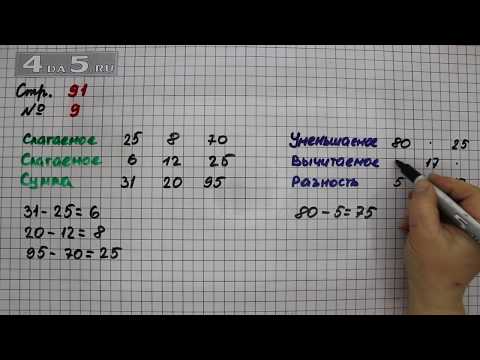 4 DA 5.RU
Стр. 91
№ 9
Слагаемое 25 8 70
Слагаемое 6 12 25
Сумма 31 20 95
31 - 25 = 6
20 - 12 = 8
95 - 70 = 25
Уменьшаемое 80 · 25
Вычитаемое 17 ·
Разность 5
80 - 5 = 75